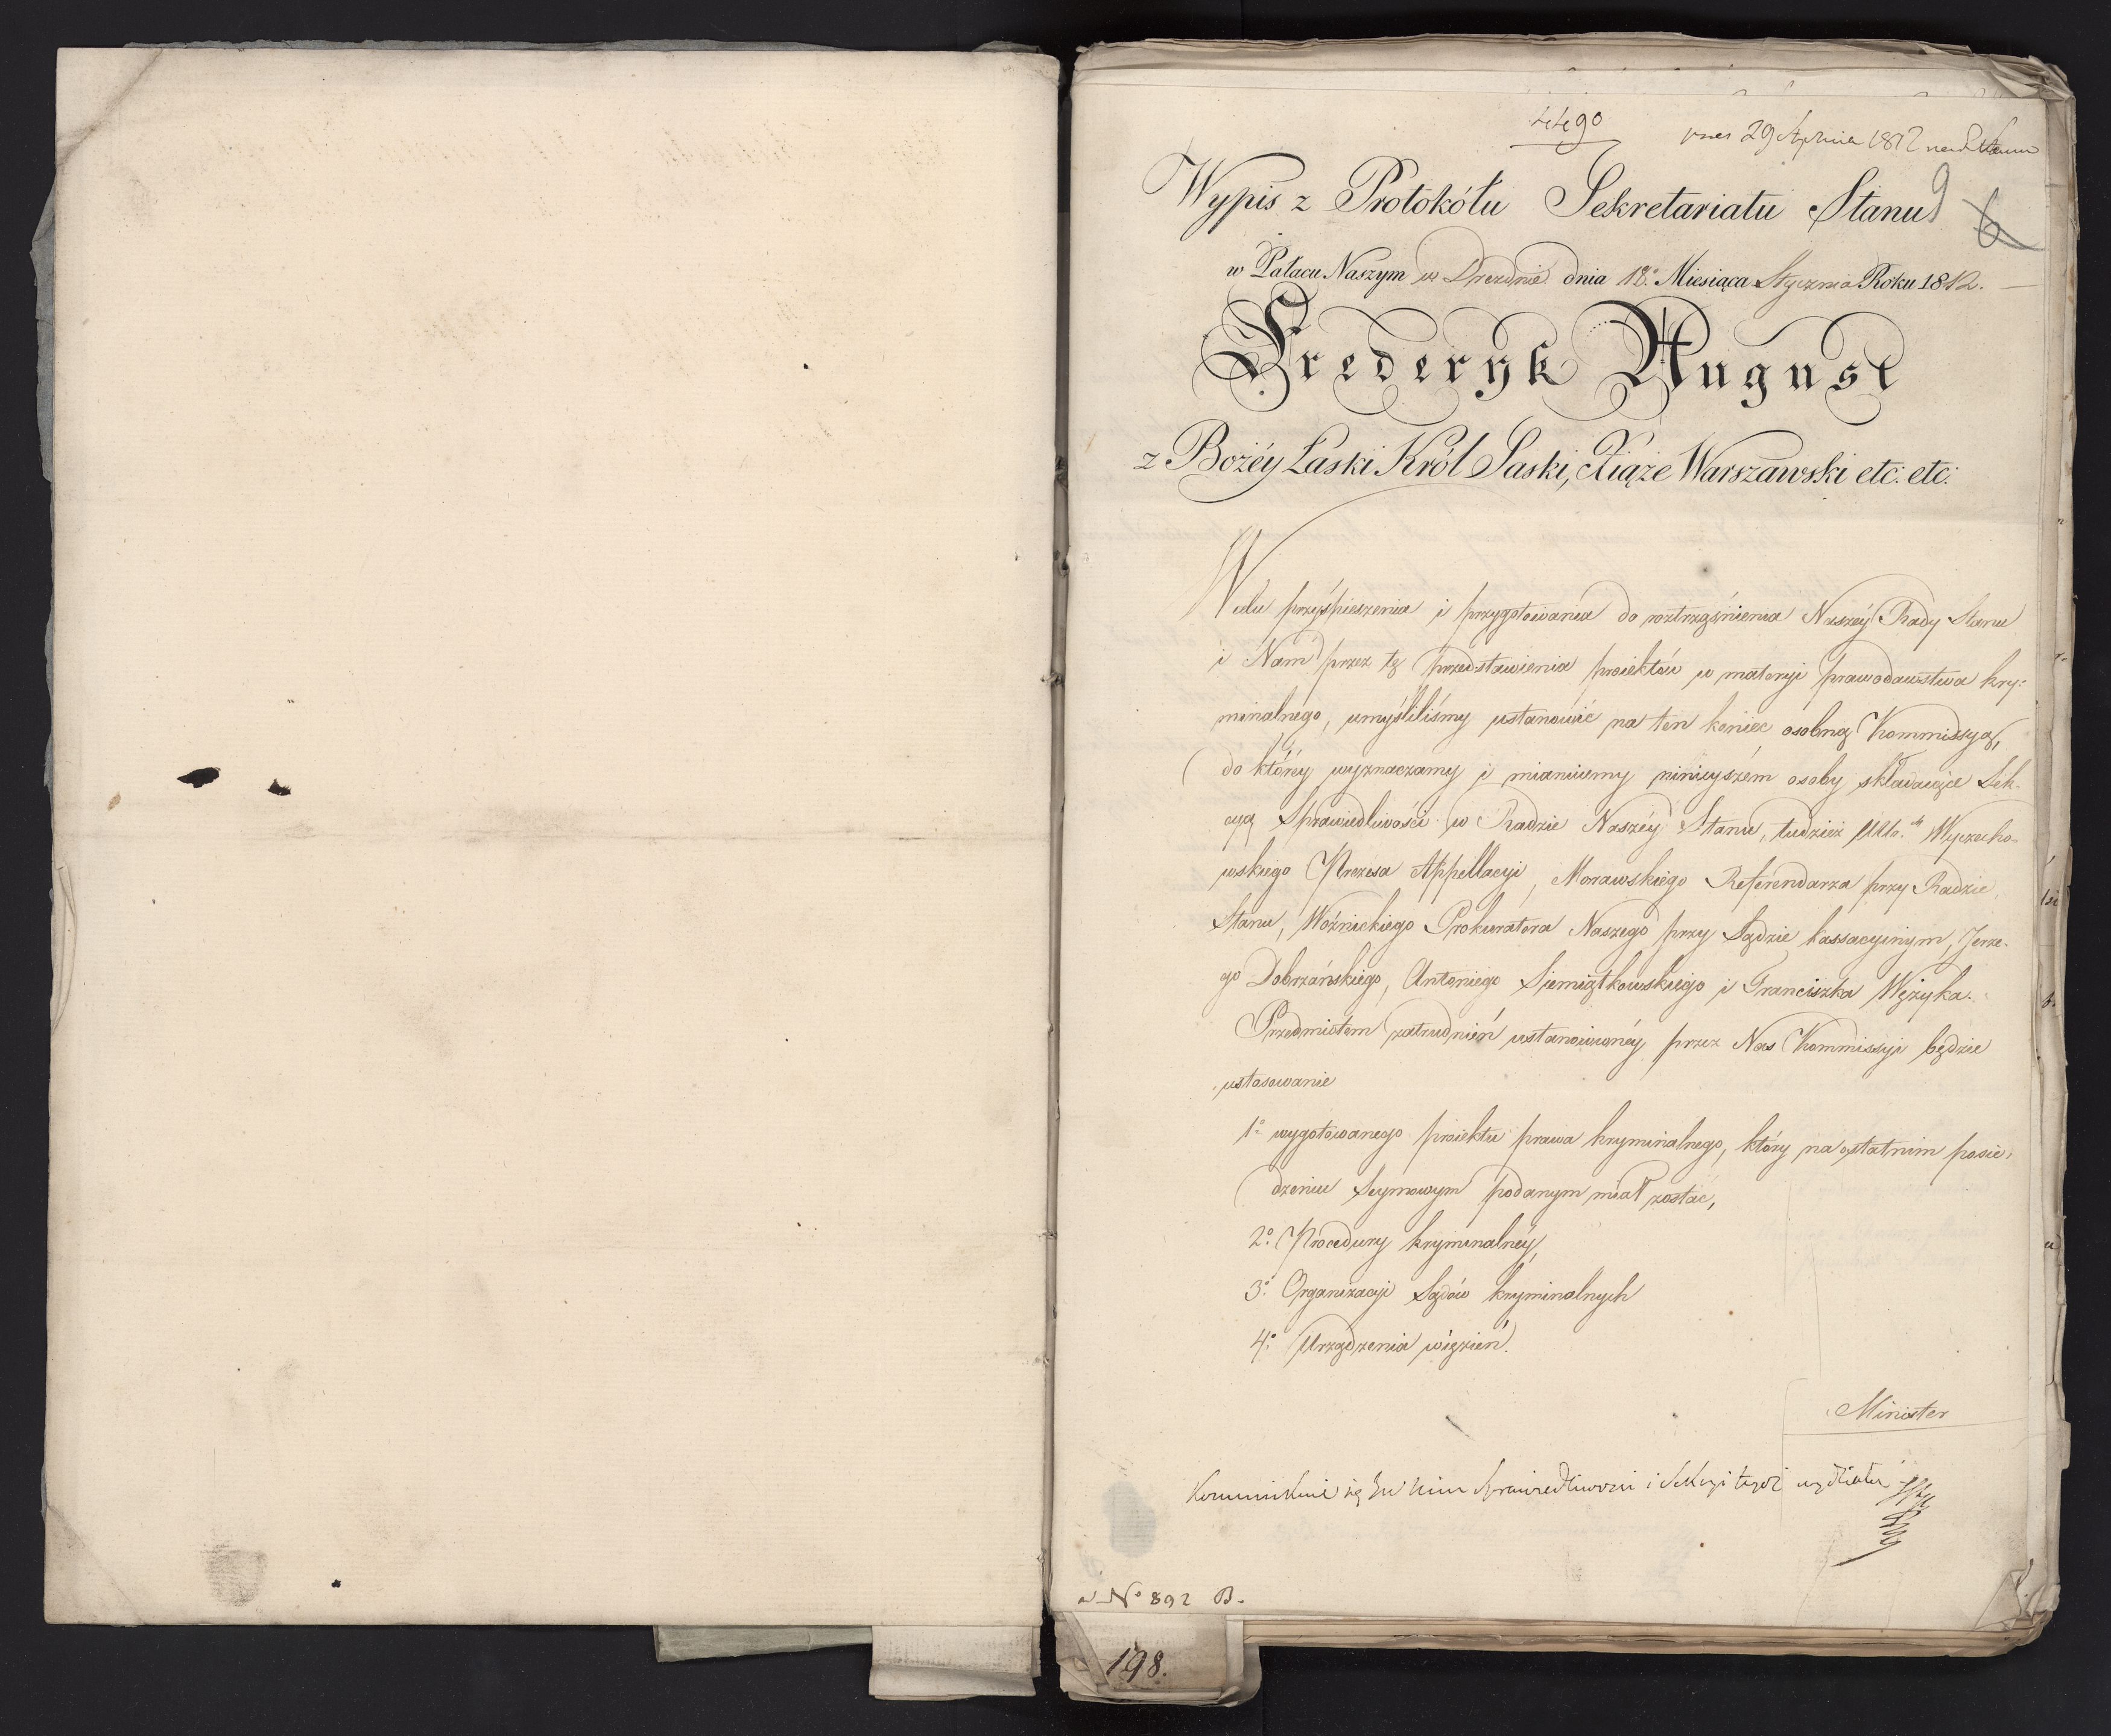 29 Stycznia 1812
Wypis z Protokółu Sekretariatu Stanu
9
6
w Pałacu Naszym w Dreznie dnia 18º. Miesiąca Stycznia Roku 1812.
Frederyk August
z Bożéy Łaski Król Saski, Xiąże Warszawski etc: etc:
W celu przyśpieszenia i przygotowania do roztrząśnienia Naszéy Rady Stanu
i Nam przez tę przedstawienia proiektów w materyi prawodawstwa kry:
minalnego, umyśliliśmy ustanowić na ten koniec osobną Kommissyą,
do któréy wyznaczamy i mianuiemy ninieyszém osoby składaiące Sek-
cyą Sprawiedliwości w Radzie Naszéy Stanu, tudzież Wyczecho-
wskiego Prezesa Appellacyi, Morawskiego Referendarza przy Radzie
Stanu, Woźnickiego Prokuratora Naszego przy Sądzie kassacyinym, Jerze-
go Dobrzańskiego, Antoniego Siemiątkowskiego i Franciszka Wężyka.
Przedmiotem zatrudnień ustanowionéy przez Nas Kommissyi będzie
ustosowanie
1º wygotowanego proiektu prawa kryminalnego, który na ostatnim posie-
dzeniu Seymowym podanym miał zostać,
2º. Procedury kryminalnéy,
3º. Organizacyi Sądów kryminalnych
4º. Urządzenia więzień.
Minister
Sprawiedliwości i Sekcyi tegoż wydziału
Nº 892 B.
198.